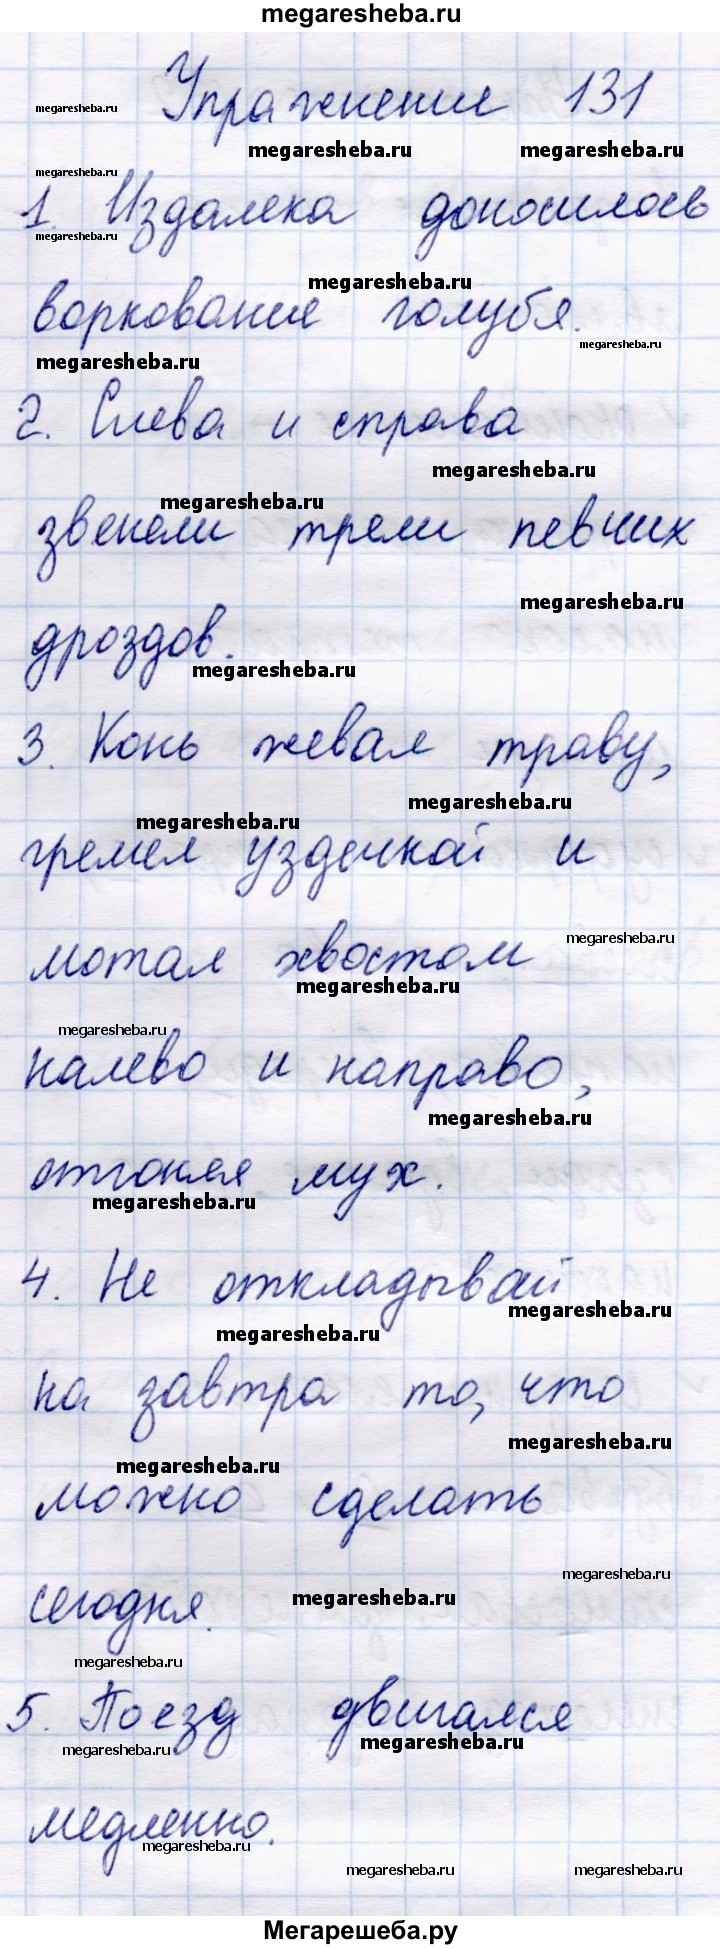 megaresheba.ru
Упражнение 131
megaresheba.ru
megaresheba.ru megaresheba.ru
megaresheba.ru
1. Издалека доносилось
megaresheba.ru
megaresheba.ru
воркование голубя.
megaresheba.ru
megaresheba.ru
2. Слева и справа
megaresheba.ru
megaresheba.ru
звенели трели певчих
megaresheba.ru
дроздов.
megaresheba.ru
3. Конь жевал траву,
megaresheba.ru
megaresheba.ru
гремел уздечкой и
megaresheba.ru
мотал хвостом
megaresheba.ru
megaresheba.ru
налево и направо,
megaresheba.ru
отгоняя мух.
megaresheba.ru
4. Не откладывай
megaresheba.ru
megaresheba.ru
на завтра то, что
megaresheba.ru
megaresheba.ru
можно сделать
megaresheba.ru
сегодня.
megaresheba.ru
megaresheba.ru
5. Поезд двигался
megaresheba.ru
megaresheba.ru
медленно.
megaresheba.ru
megaresheba.ru megaresheba.ru
Мегарешеба.ру